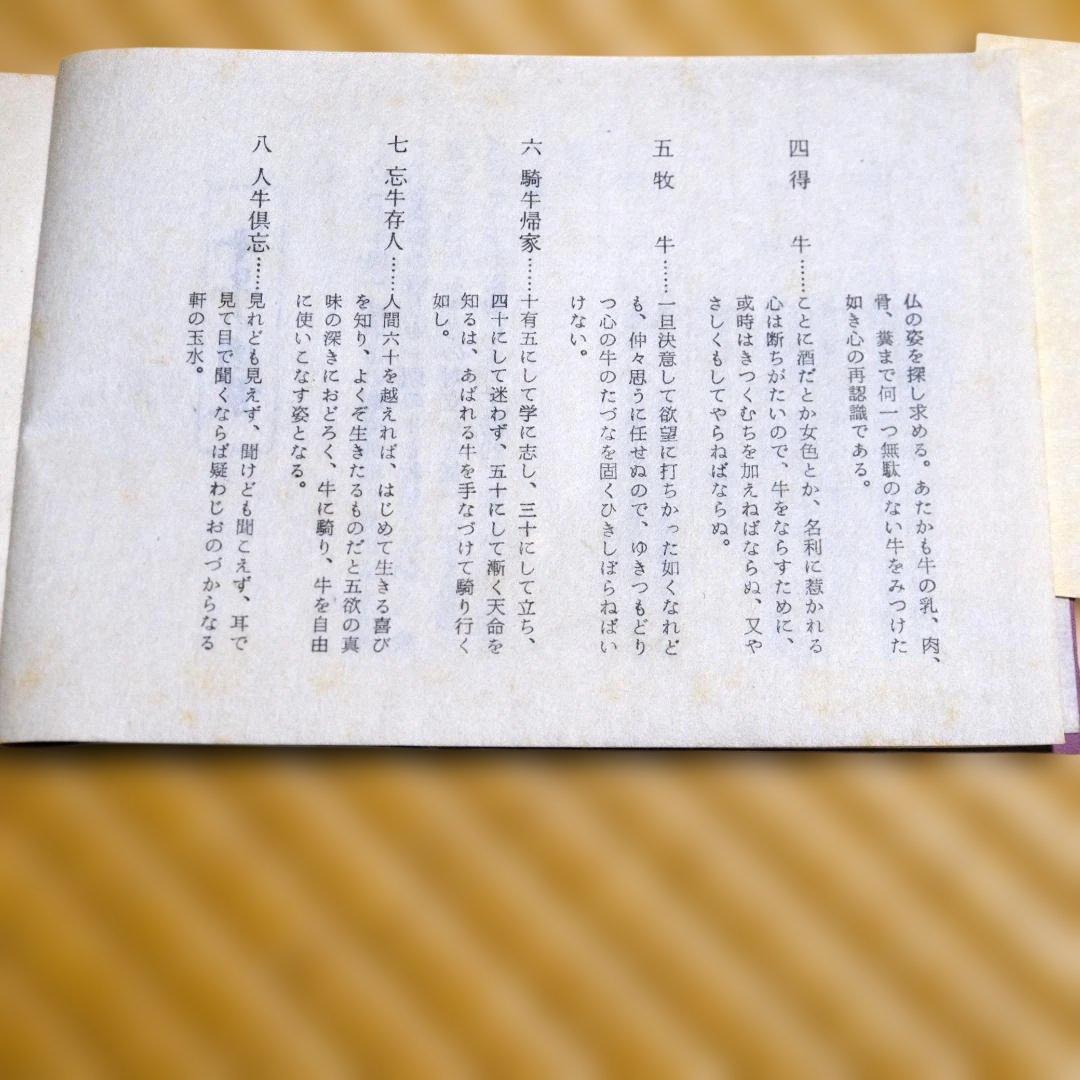 仏の姿を探し求める。あたかも牛の乳、肉、
骨、糞まで何一つ無駄のない牛をみつけた
如き心の再認識である。
四 得 牛……ことに酒だとか女色とか、名利に惹かれる
心は断ちがたいので、牛をならすために、
或時はきつくむちを加えねばならぬ、又や
さしくもしてやらねばならぬ。
五 牧 牛……一旦決意して欲望に打ちかった如くなれど
も、仲々思うに任せぬので、ゆきつもどり
つ心の牛のたづなを固くひきしぼらねばい
けない。
六 騎牛帰家……十有五にして学に志し、三十にして立ち、
四十にして迷わず、五十にして漸く天命を
知るは、あばれる牛を手なづけて騎り行く
如し。
七 忘牛存人……人間六十を越えれば、はじめて生きる喜び
を知り、よくぞ生きたるものだと五欲の真
味の深きにおどろく、牛に騎り、牛を自由
に使いこなす姿となる。
八 人牛倶忘……見れども見えず、聞けども聞こえず、耳で
見て目で聞くならば疑わじおのづからなる
軒の玉水。